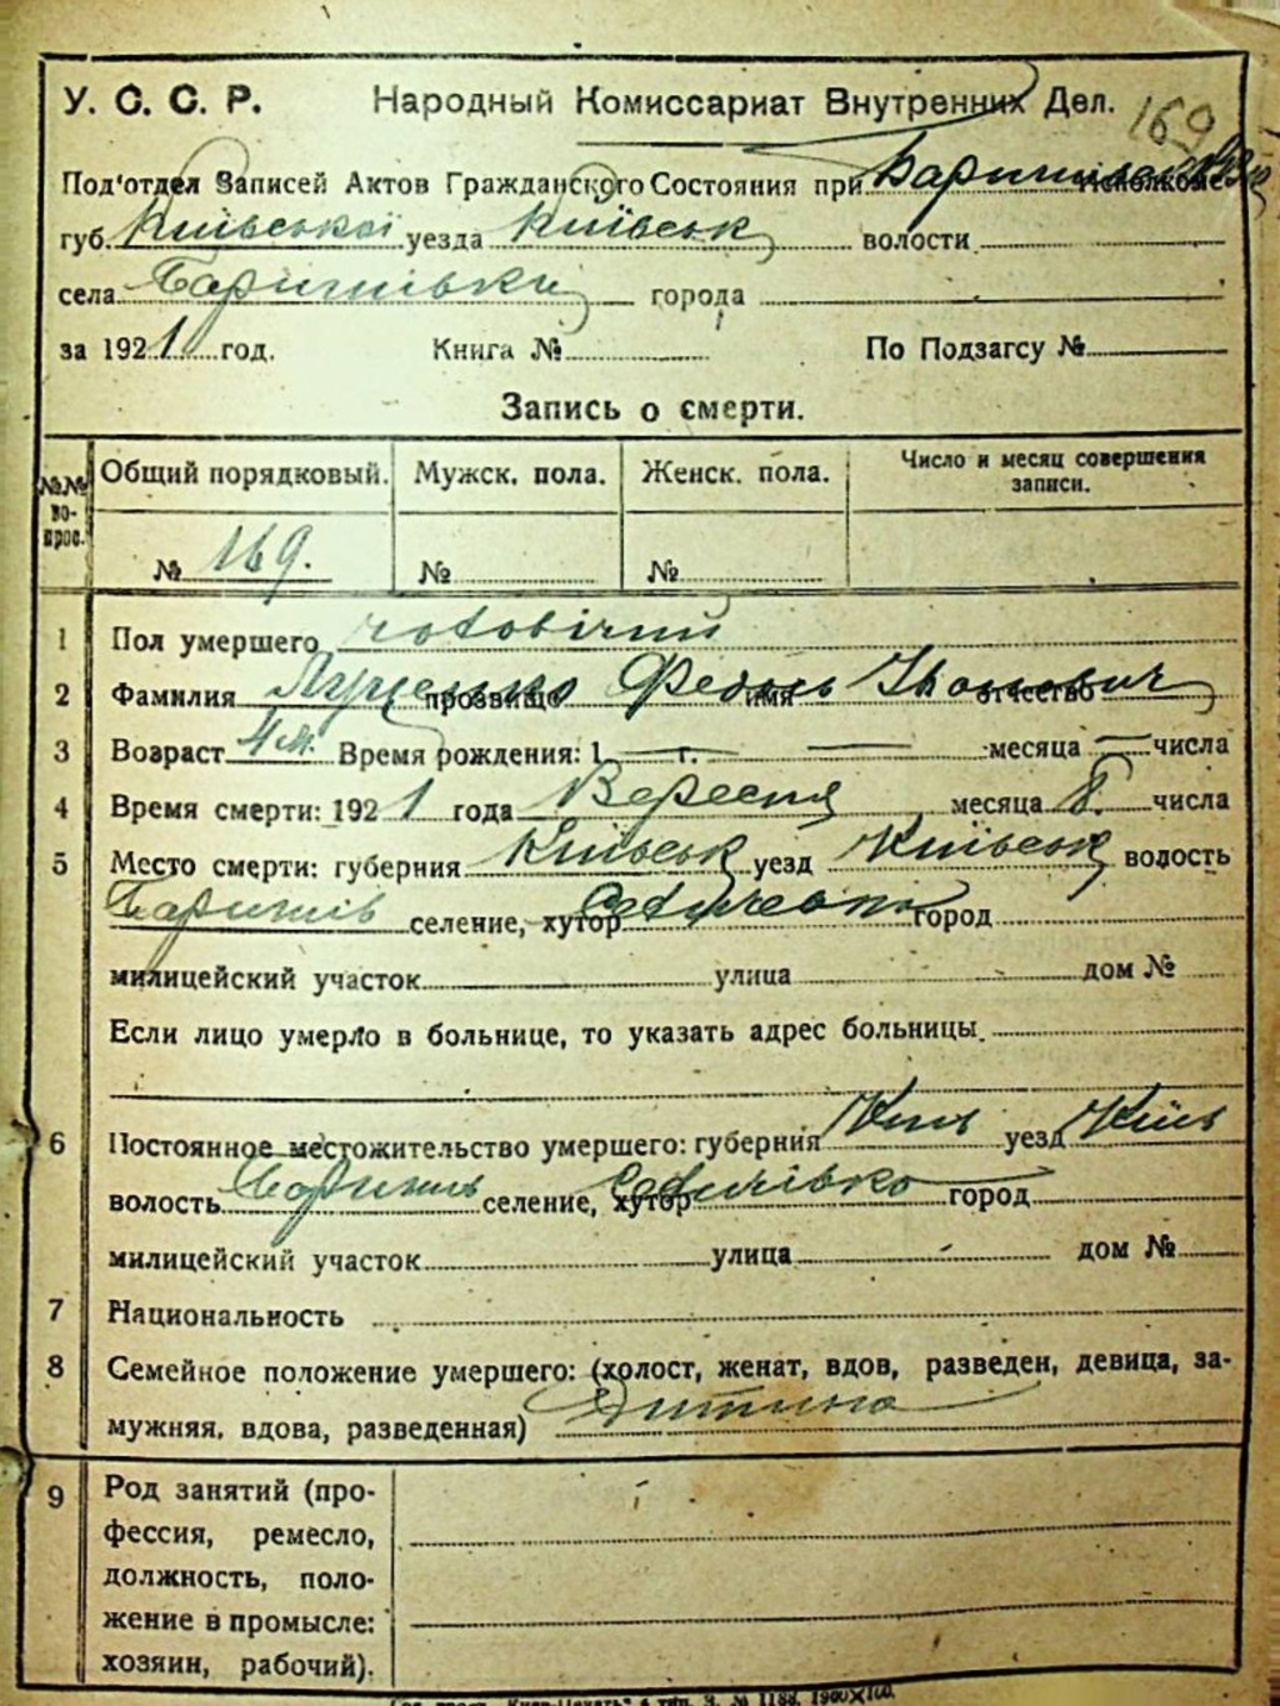 У. С. С. Р. Народный Комиссариат Внутренних Дел. 169
Под'отдел Записей Актов Гражданского Состояния при Исполкоме
губ. Київської уезда Київськ волости
села Баришівки города
за 1921 год. Книга № По Подзагсу №
Запись о смерти.
№№ вопрос. Общий порядковый. Мужск. пола. Женск. пола. Число и месяц совершения записи.
№ 169. № №
1 Пол умершего чоловічий
2 Фамилия Луценко прозвище Федось имя Іванович отчество
3 Возраст 4 м. Время рождения: 1 — г. — месяца — числа
4 Время смерти: 1921 года Вересня месяца 8. числа
5 Место смерти: губерния Київськ уезд Київськ волость
Баришів селение, хутор город
милицейский участок улица дом №
Если лицо умерло в больнице, то указать адрес больницы.
6 Постоянное местожительство умершего: губерния Київ уезд Київ
волость Баришів селение, хутор город
милицейский участок улица дом №
7 Национальность
8 Семейное положение умершего: (холост, женат, вдов, разведен, девица, за-
мужняя, вдова, разведенная) Дитина
9 Род занятий (про-
фессия, ремесло,
должность, поло-
жение в промысле:
хозяин, рабочий).